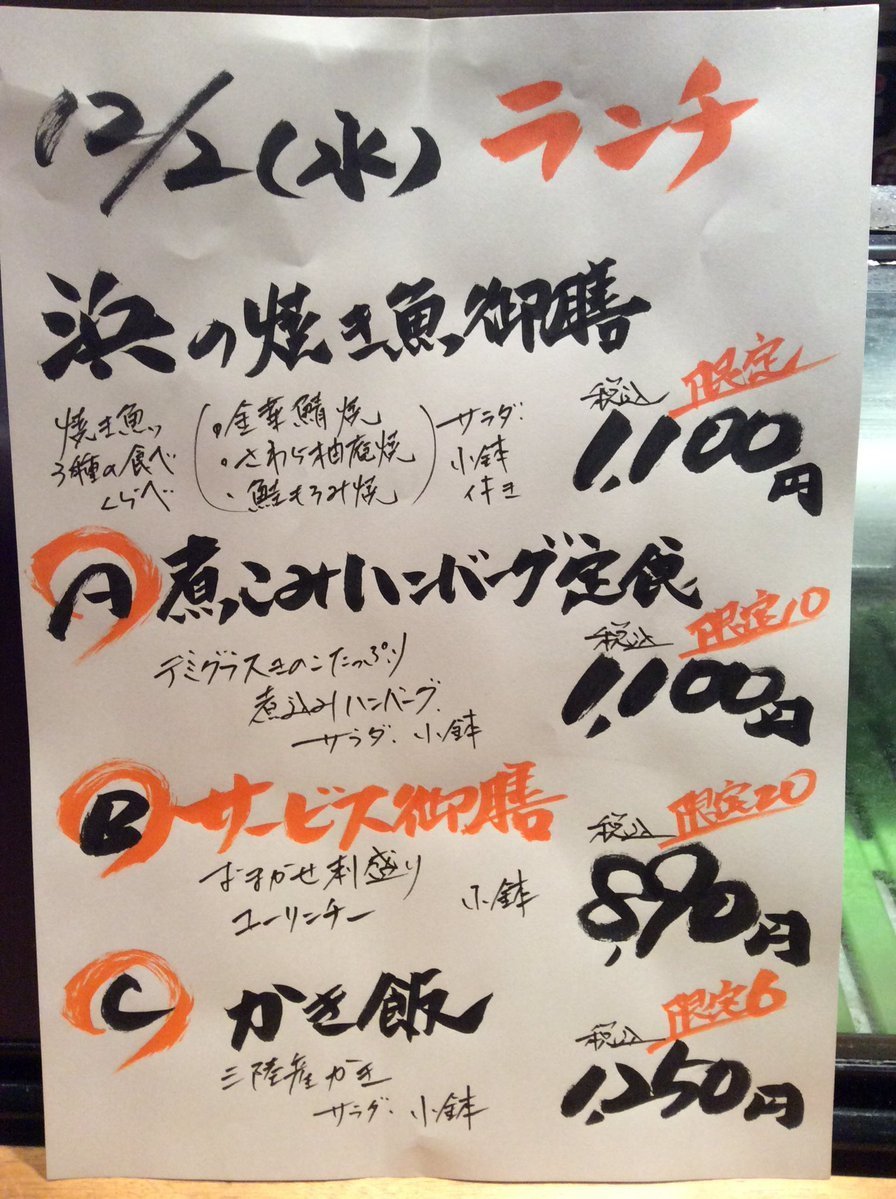 12/2(水) ランチ
浜の焼き魚御膳
限定
税込
1,100円
焼き魚
3種の食べ
くらべ
・金華鯖焼
・さわら柚庵焼
・鮭もろみ焼
サラダ・
小鉢
付き
A 煮こみハンバーグ定食
限定10
税込
1,100円
デミグラスきのこたっぷり
煮込みハンバーグ
サラダ・小鉢
B サービス御膳
限定20
税込
890円
おまかせ刺盛り
ユーリンチー
小鉢
C かき飯
限定6
税込
1,250円
三陸産かき
サラダ・小鉢